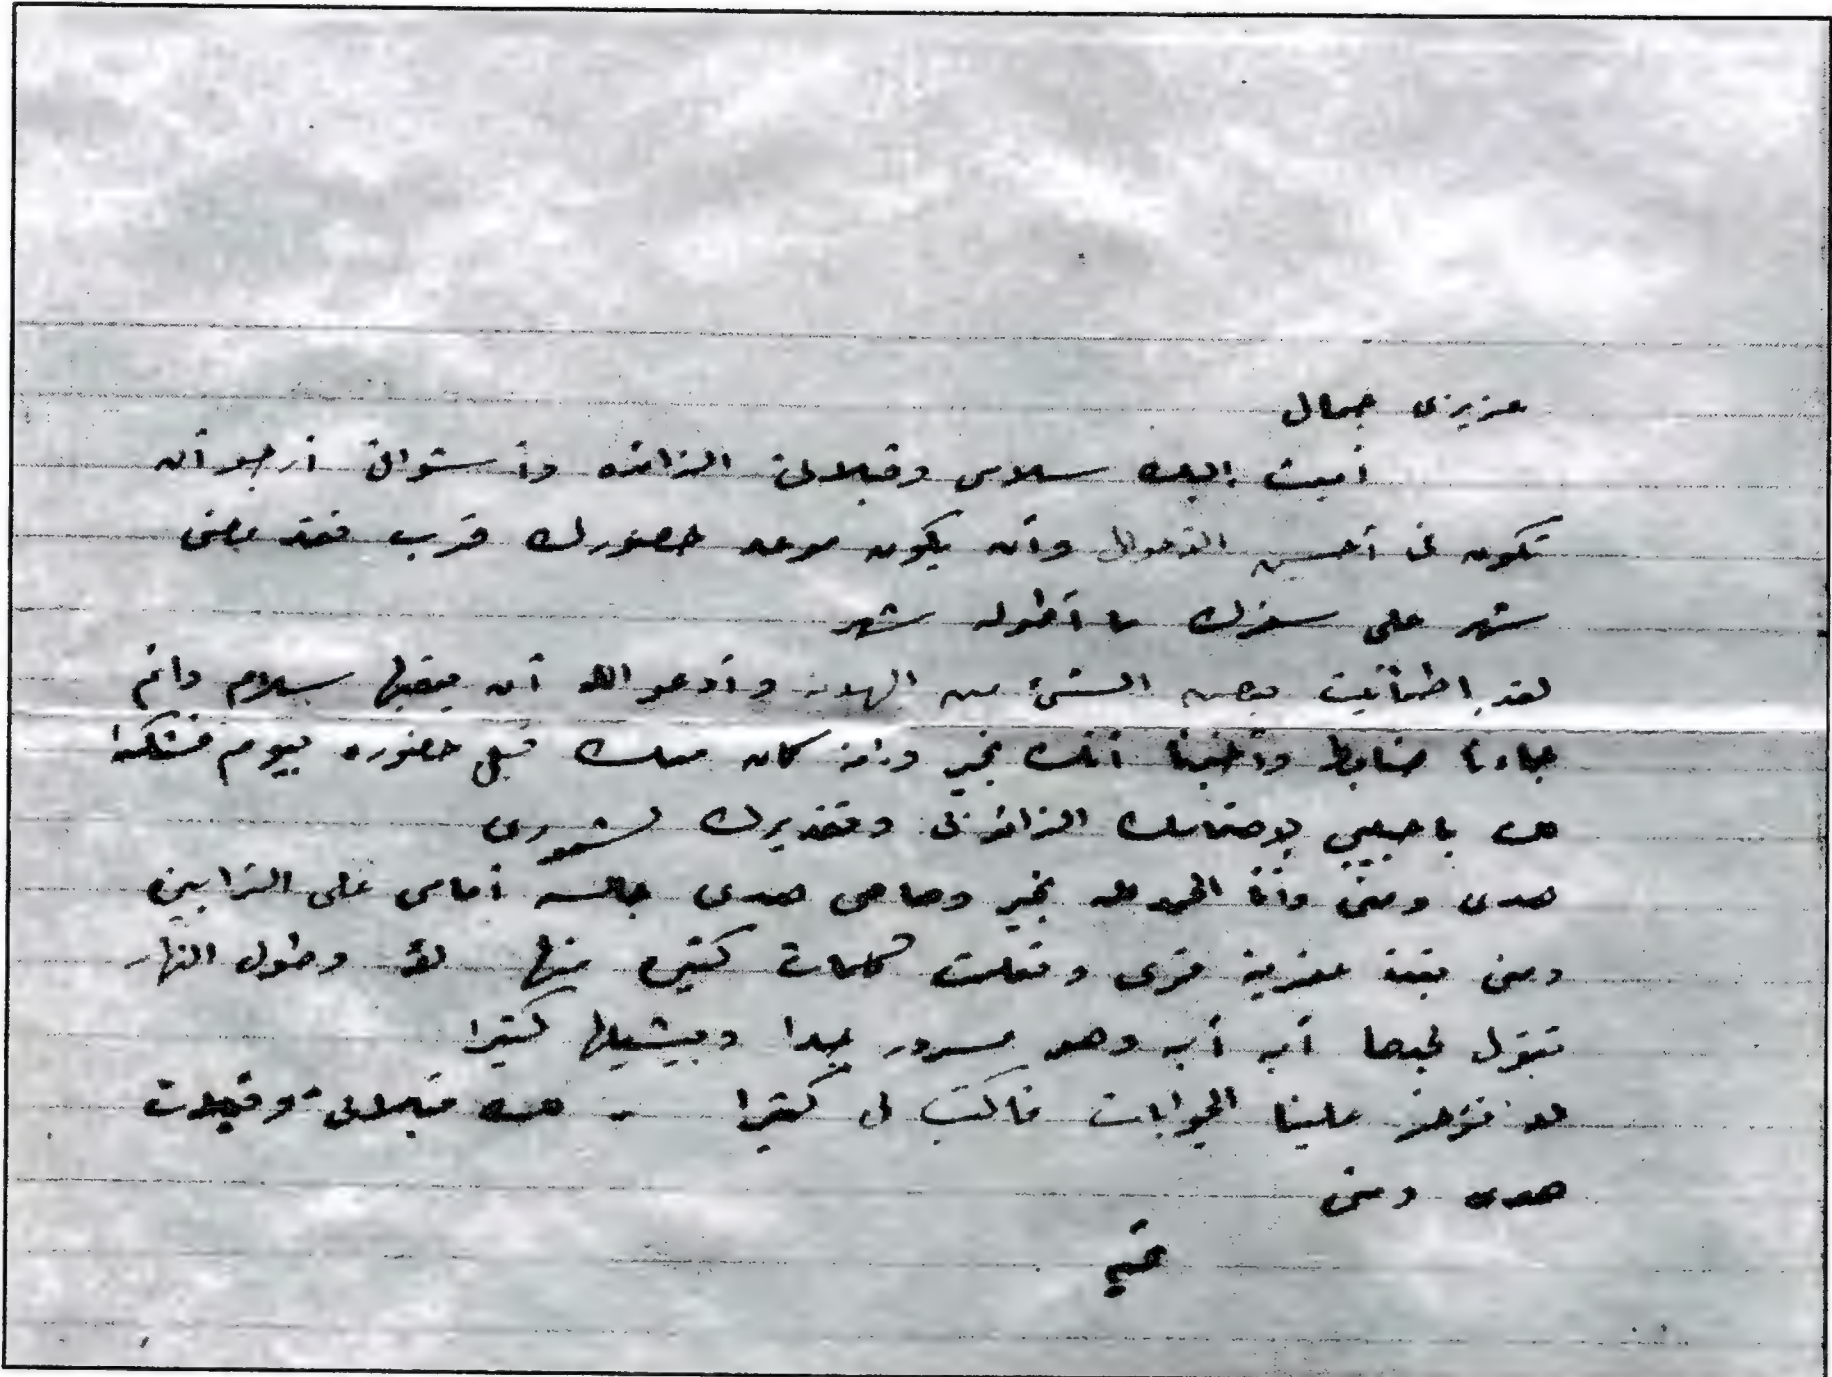 عزيزى جمال
أبعث إليك سلامى وقبلاتى الزائده وأشواقى أرجو أن
تكون فى أحسن الأحوال وأن يكون موعد حضورك قرب فقد مضى
شهر على سفرك ما أطوله شهر
لقد اطمأنيت بعض الشئ من الهدنة وأدعو الله أن يعقبها سلام دائم
جاءنا ضابط وأخبرنا أنك بخير وانه كان معك قبل حضوره بيوم فشكرا
لك يا حبيبى لاهتمامك الزائد بى وتقديرك لشعورى
هدى ومنى وأنا الحمد لله بخير وها هى هدى جالسه أمامى على الترابيزة
ومنى بقت عفريته قوى وتعلمت كلمات كثيرة منها لقه وطول النهار
تقول لعبدها أبه أبه وهو مسرور جدا وبيشيلها كثيرا
لا تؤخر علينا الجوابات فاكتب لى كثيرا - لك قبلاتى وقبلات
هدى ومنى
تحية